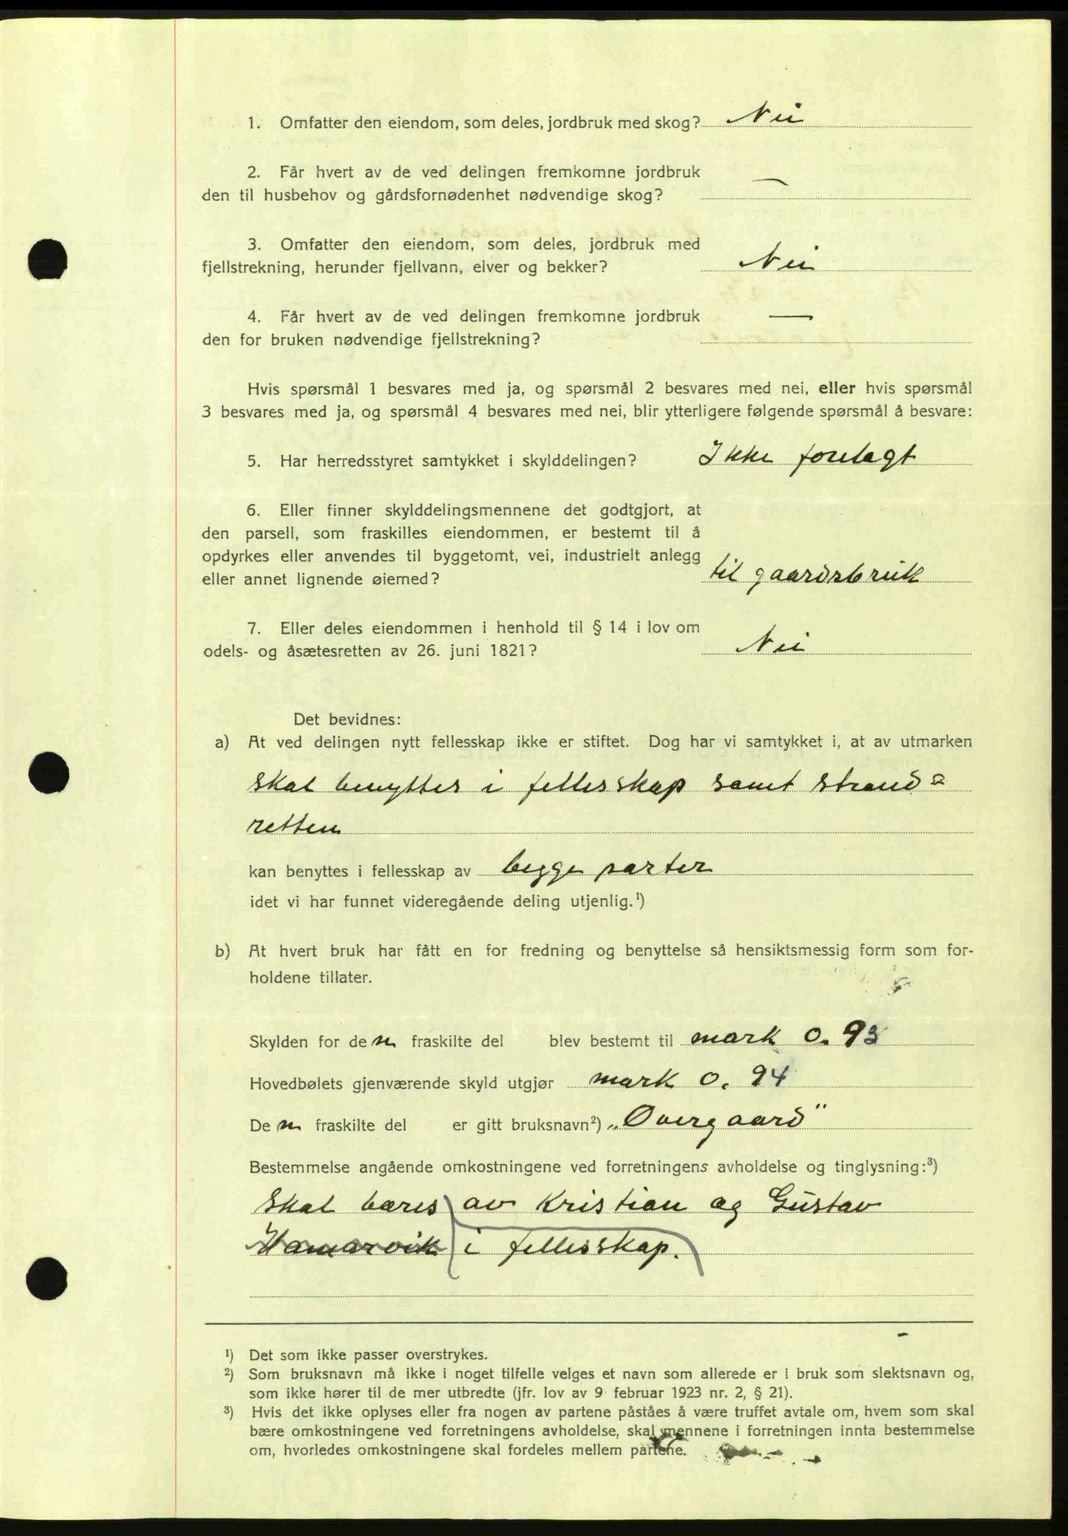 1. Omfatter den eiendom, som deles, jordbruk med skog? Nei
2. Får hvert av de ved delingen fremkomne jordbruk
den til husbehov og gårdsfornødenhet nødvendige skog? —
3. Omfatter den eiendom, som deles, jordbruk med
fjellstrekning, herunder fjellvann, elver og bekker? Nei
4. Får hvert av de ved delingen fremkomne jordbruk —
den for bruken nødvendige fjellstrekning?
Hvis spørsmål 1 besvares med ja, og spørsmål 2 besvares med nei, eller hvis spørsmål
3 besvares med ja, og spørsmål 4 besvares med nei, blir ytterligere følgende spørsmål å besvare:
5. Har herredsstyret samtykket i skylddelingen? Ikke forelagt
6. Eller finner skylddelingsmennene det godtgjort, at
den parsell, som fraskilles eiendommen, er bestemt til å
opdyrkes eller anvendes til byggetomt, vei, industrielt anlegg
eller annet lignende øiemed? til gaardsbruk
7. Eller deles eiendommen i henhold til § 14 i lov om
odels- og åsætesretten av 26. juni 1821? Nei
Det bevidnes:
a) At ved delingen nytt fellesskap ikke er stiftet. Dog har vi samtykket i, at av utmarken
skal benyttes i fellesskap samt strand=
retten
kan benyttes i fellesskap av begge parter
idet vi har funnet videregående deling utjenlig.¹)
b) At hvert bruk har fått en for fredning og benyttelse så hensiktsmessig form som for-
holdene tillater.
Skylden for den fraskilte del blev bestemt til mark 0.93
Hovedbølets gjenværende skyld utgjør mark 0.94
Den fraskilte del er gitt bruksnavn²) „Øvergaard"
Bestemmelse angående omkostningene ved forretningens avholdelse og tinglysning:³)
Skal bæres av Kristian og Gustav
Hamarvik i fellesskap.
¹) Det som ikke passer overstrykes.
²) Som bruksnavn må ikke i noget tilfelle velges et navn som allerede er i bruk som slektsnavn og,
som ikke hører til de mer utbredte (jfr. lov av 9 februar 1923 nr. 2, § 21).
³) Hvis det ikke oplyses eller fra nogen av partene påståes å være truffet avtale om, hvem som skal
bære omkostningene ved forretningens avholdelse, skal mennene i forretningen innta bestemmelse
om, hvorledes omkostningene skal fordeles mellem partene.